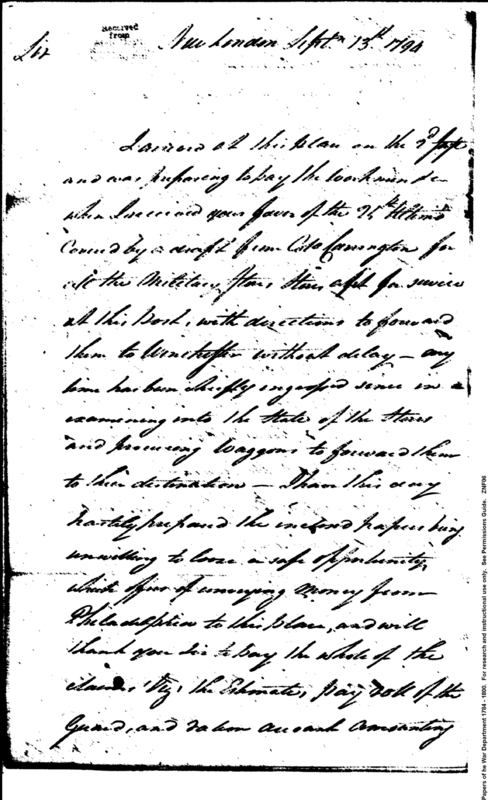 Received
from
Sir
New London Sept. 13th 1794
I arrived at this place on the 3d
and was preparing to pay the workmen &c
when I received your favor of the
Covered by a draft from Colo Carrington for
all the Military Stores fit for service
at this Post, with directions to forward
them to Winchester without delay — my
time has been chiefly engaged since in
examining into the State of the Stores
and procuring Waggons to forward them
to their destination — I have this day
hastily prepared the inclosed papers being
unwilling to loose a safe opportunity,
which offers of conveying money from
Philadelphia to this place, and will
thank you Sir to pay the whole of the
claims Viz, the Estimate, pay roll of the
Guard, and amounting
Papers of he War Department 1784 - 1800. For research and instructional use only. See Permissions Guide. ZNP06